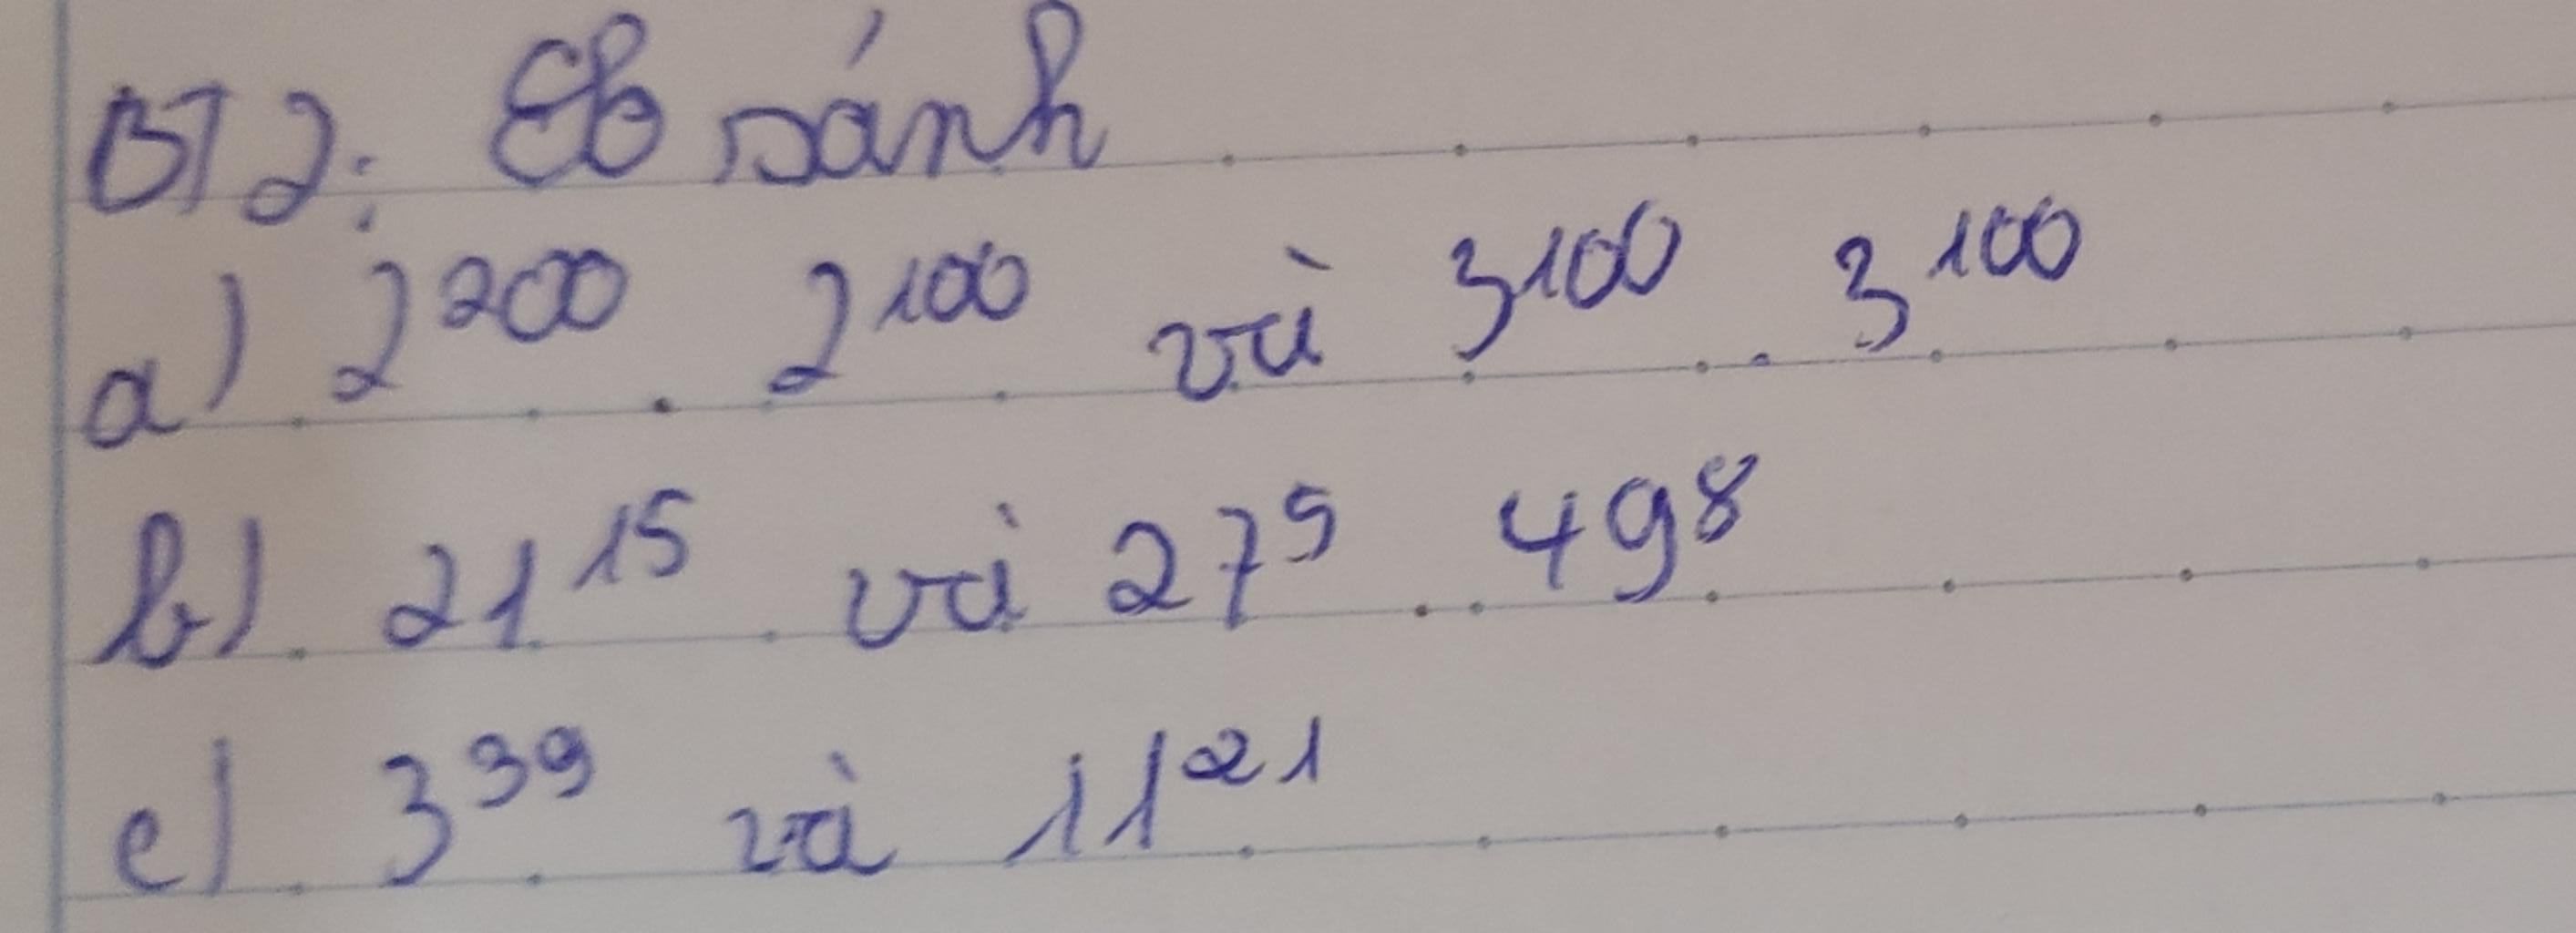 BT2: So sánh
a) 2²⁰⁰ . 2¹⁰⁰ và 3¹⁰⁰ . 3¹⁰⁰
b) 21¹⁵ và 27⁵ . 49⁸
c) 3³⁹ và 11²¹